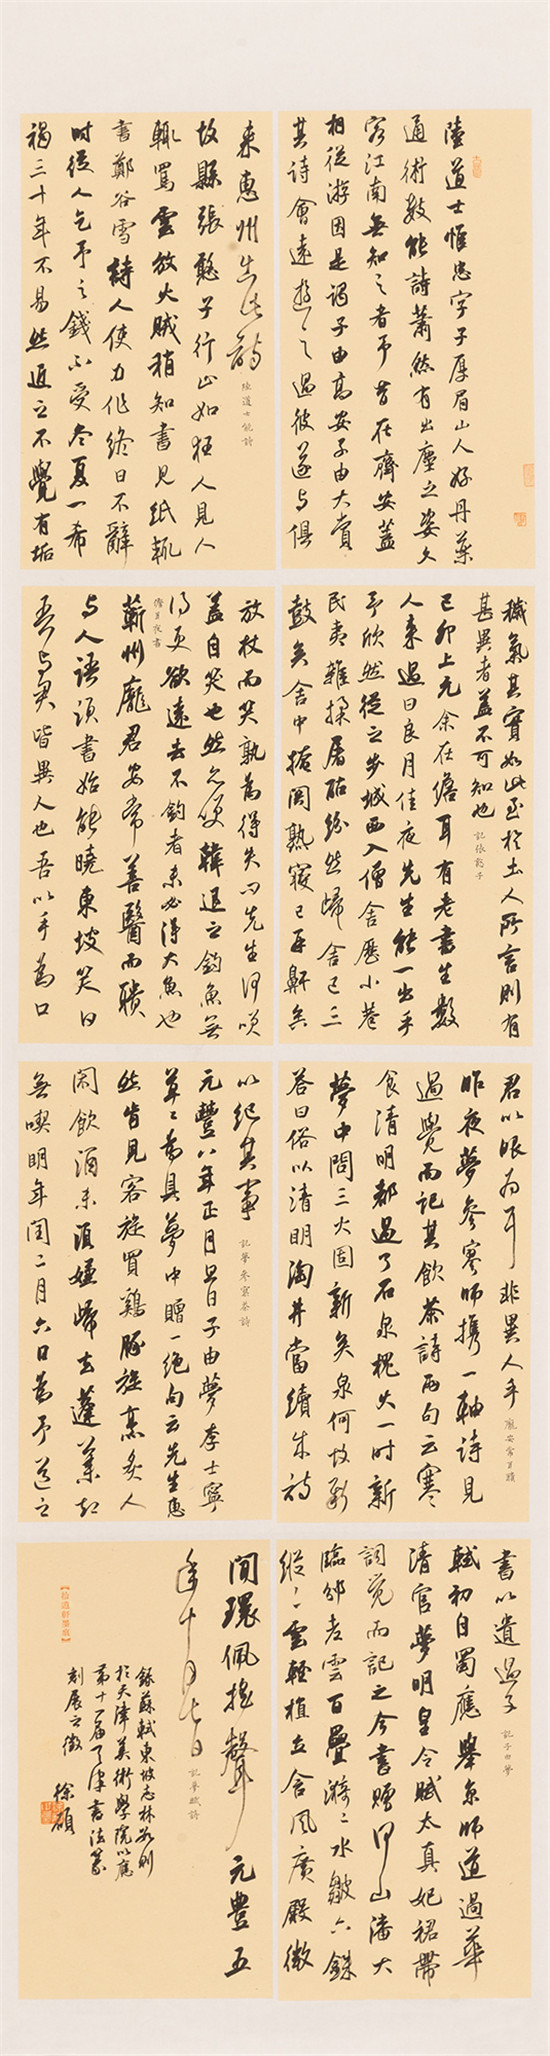 陸道士惟忠字子厚眉山人好丹藥
通術數能詩蕭然有出塵之姿久
客江南無知之者予昔在齊安蓋
相從游因是謁子由高安子由大賞
其詩會遠遊之過彼遂與俱
来惠州出此詩
陸道士能詩
故縣張憨子行止如狂人見人
輒罵云放火賊稍知書見紙輒
書鄭谷雪詩人使力作終日不辭
時從人乞予之錢不受冬夏一布
褐三十年不易然近之不覺有垢
穢氣其實如此至於土人所言則有
甚異者蓋不可知也
記張憨子
己卯上元余在儋耳有老書生數
人来過曰良月佳夜先生能一出乎
予欣然從之步城西入僧舍歷小巷
民夷雜揉屠酤紛然歸舍已三
鼓矣舍中掩關熟寢已再鼾矣
放杖而笑孰為得失問先生何笑
蓋自笑也然亦笑韓退之釣魚無
得更欲遠去不知釣者未必得大魚也
儋耳夜書
蘄州龐君安常善醫而聵
與人語須書始能曉東坡笑曰
吾與君皆異人也吾以手為口
君以眼為耳非異人乎
龐安常耳聵
昨夜夢參寥師攜一軸詩見
過覺而記其飲茶詩兩句云寒
食清明都過了石泉槐火一時新
夢中問火固新矣泉何故新
答曰俗以清明淘井當續成詩
以紀其事
記夢參寥茶詩
元豐八年正月旦日子由夢李士寧
草草為具夢中贈一絕句云先生惠
然肯見客旋買雞豚旋烹炙人
間飲酒未須嫌歸去蓬萊却
無喫明年閏二月六日為予道之
書以遺過子
記子由夢
軾初自蜀應舉京師道過華
清宮夢明皇令賦太真妃裙帶
詞覺而記之今書贈何山潘大
臨邠老云百疊漪漪水皺六銖
縰縰雲輕植立含風廣殿微
聞環佩搖聲元豐五
年十月七日
記夢賦詩
錄蘇軾東坡志林数則
於天津美術學院以應
第十一届天津書法篆
刻展之徵
徐碩